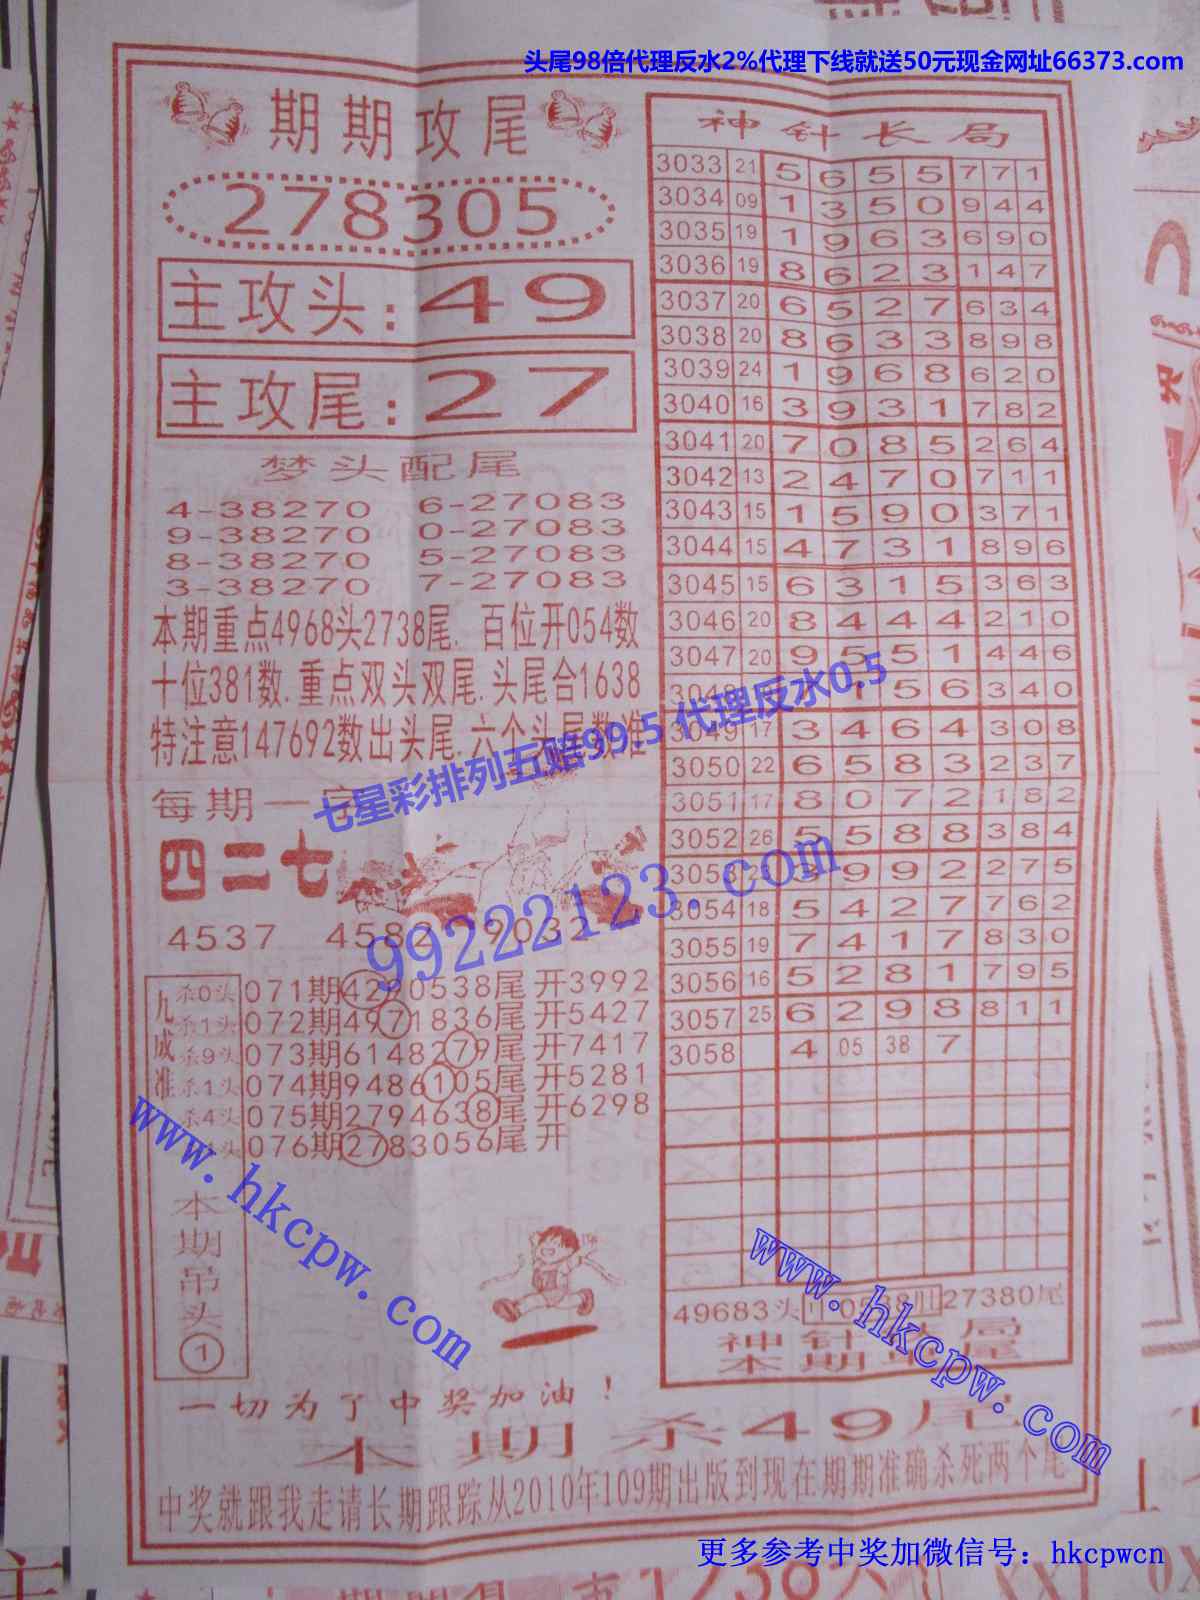 头尾98倍代理反水2%代理下线就送50元现金网址66373.com
期期攻尾
278305
主攻头:49
主攻尾:27
梦头配尾
4-38270 6-27083
9-38270 0-27083
8-38270 5-27083
3-38270 7-27083
本期重点4968头2738尾.百位开054数
十位381数.重点双头双尾.头尾合1638
特注意147692数出头尾.六个头尾数准
每期一
四二七
4537 4582 9032
九成准
杀0头 071期4220538尾 开3992
杀1头 072期4971836尾 开5427
杀9头 073期6148279尾 开7417
杀1头 074期9486105尾 开5281
杀4头 075期2794638尾 开6298
头 076期2783056尾 开
本期吊头①
一切为了中奖加油!
神针长局
3033 21 5 6 5 5 7 7 1
3034 09 1 3 5 0 9 4 4
3035 19 1 9 6 3 6 9 0
3036 19 8 6 2 3 1 4 7
3037 20 6 5 2 7 6 3 4
3038 20 8 6 3 3 8 9 8
3039 24 1 9 6 8 6 2 0
3040 16 3 9 3 1 7 8 2
3041 20 7 0 8 5 2 6 4
3042 13 2 4 7 0 7 1 1
3043 15 1 5 9 0 3 7 1
3044 15 4 7 3 1 8 9 6
3045 15 6 3 1 5 3 6 3
3046 20 8 4 4 4 2 1 0
3047 20 9 5 5 1 4 4 6
3048 5 6 3 4 0
3049 17 3 4 6 4 3 0 8
3050 22 6 5 8 3 2 3 7
3051 17 8 0 7 2 1 8 2
3052 26 5 5 8 8 3 8 4
3053 23 3 9 9 2 2 7 5
3054 18 5 4 2 7 7 6 2
3055 19 7 4 1 7 8 3 0
3056 16 5 2 8 1 7 9 5
3057 25 6 2 9 8 8 1 1
3058 4 05 38 7
49683头 27380尾
神针 局
本期
本期杀49尾
中奖就跟我走请长期跟踪从2010年109期出版到现在期期准确杀死两个尾
七星彩排列五赔99.5 代理反水0.5
99222123.com
www.hkcpw.com
www.hkcpw.com
更多参考中奖加微信号：hkcpwcn